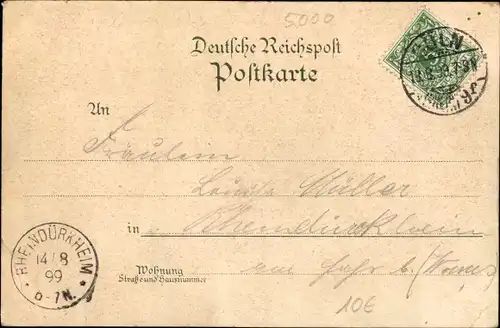 5000
Deutsche Reichspost
Postkarte
CÖLN
An
Fräulein
Louise Müller
in
Rheindürkheim
14/8
99
6-7N.
RHEINDÜRKHEIM
Wohnung
Straße und Hausnummer
(Worms)
10€